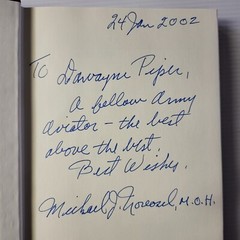 24 Jan 2002
To Dawayne Piper,
A fellow Army
Aviator - the best
above the best.
Best Wishes,
Michael J. Novosel, M.O.H.